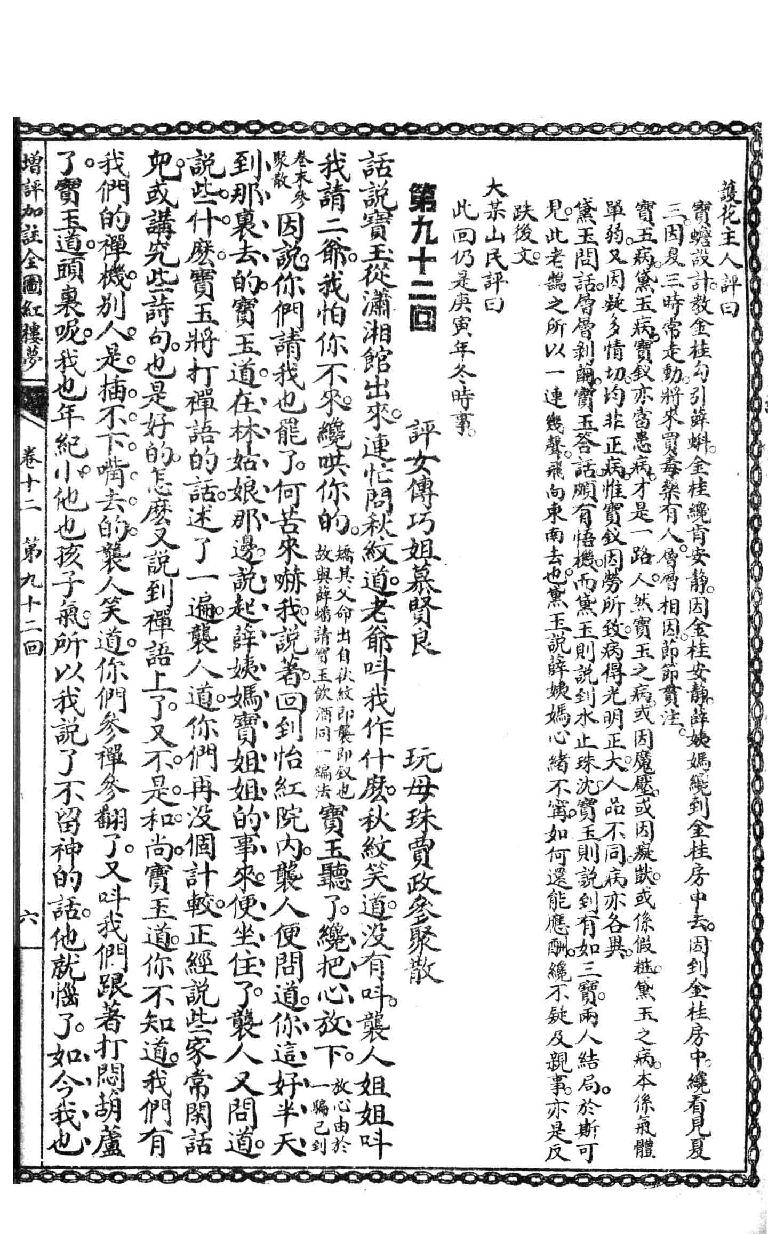 護花主人評曰
寶蟾設計教金桂勾引薛蝌。金桂纔肯安靜。因金桂安靜。薛姨媽纔到金桂房中去。因到金桂房中。纔看見夏
三。因夏三時常走動。將來買毒藥有人。層層相因。節節貫注。
寶玉病。黛玉病。寶釵亦當患病。才是一路人。然寶玉之病。或因魔魘。或因癡獃。或係假粧。黛玉之病。本係氣體
單弱。又因疑多情切。均非正病。惟寶釵因勞所致。病得光明正大。人品不同。病亦各異。
黛玉問話。層層剝繭。寶玉答話。頗有悟機。而黛玉則說到水止珠沈。寶玉則說到有如三寶。兩人結局。於斯可
見。此老鴰之所以一連幾聲。飛向東南去也。黛玉說薛姨媽心緒不甯。如何還能應酬。纔不疑及親事。亦是反
跌後文。
大某山民評曰
此回仍是庚寅年冬時事。
第九十二回　評女傳巧姐慕賢良　玩母珠賈政參聚散
話說寶玉從瀟湘館出來。連忙問秋紋道。老爺叫我作什麽。秋紋笑道。沒有叫。襲人姐姐叫
我請二爺。我怕你不來。纔哄你的。矯其父命出自秋紋卽襲卽釵也故與薛蟠請寶玉飲酒同一編法寶玉聽了。纔把心放下。放心由於一騙已到
卷末參聚散因說。你們請我也罷了。何苦來嚇我。說著。回到怡紅院內。襲人便問道。你這好半天
到那裏去的。寶玉道。在林姑娘那邊。說起薛姨媽寶姐姐的事來。便坐住了。襲人又問道。
說些什麽。寶玉將打禪語的話。述了一遍。襲人道。你們再沒個計較。正經說些家常閒話
兒。或講究些詩句。也是好的。怎麽又說到禪語上了。又不是和尚。寶玉道。你不知道。我們有
我們的禪機。別人是插不下嘴去的。襲人笑道。你們參禪參翻了。又叫我們跟著打悶葫蘆
了。寶玉道。頭裏呢。我也年紀小。他也孩子氣。所以我說了不留神的話。他就惱了。如今我也
增評加註全圖紅樓夢　卷十二　第九十二回　六